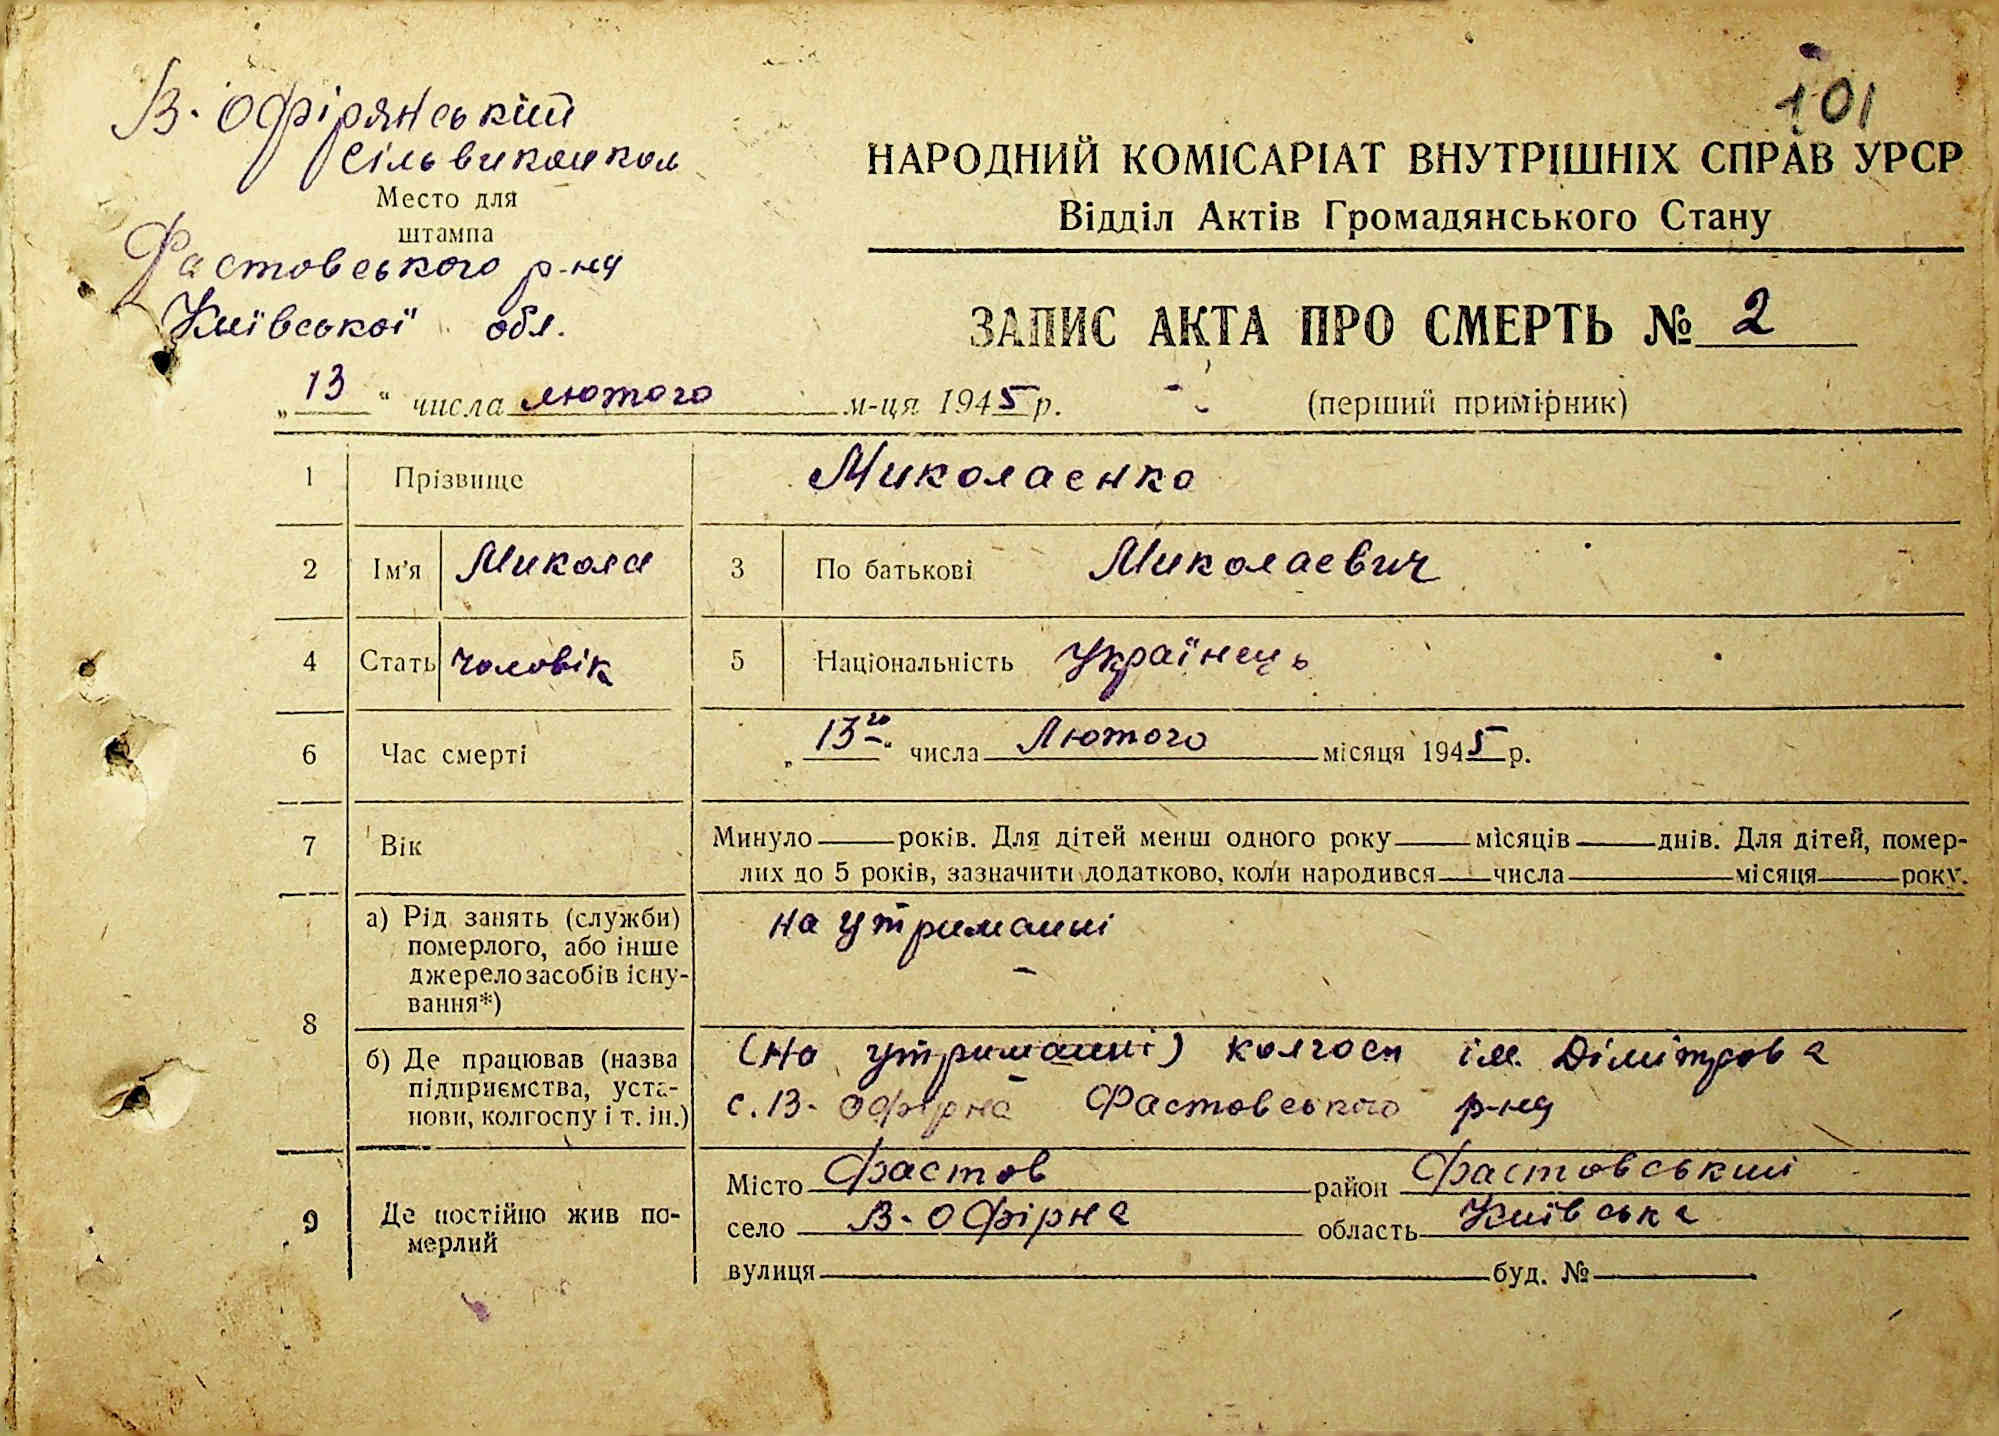 101
В-Офірянський
сільвиконком
Место для
штампа
Фастовського р-ну
Київської обл.
НАРОДНИЙ КОМІСАРІАТ ВНУТРІШНІХ СПРАВ УРСР
Відділ Актів Громадянського Стану
ЗАПИС АКТА ПРО СМЕРТЬ № 2
„13“ числа лютого м-ця 1945 р. (перший примірник)
1 Прізвище Миколаенко
2 Ім'я Микола 3 По батькові Миколаевич
4 Стать чоловік 5 Національність Українець
6 Час смерті „13го“ числа Лютого місяця 1945 р.
7 Вік Минуло ___ років. Для дітей менш одного року ___ місяців ___ днів. Для дітей, помер-
лих до 5 років, зазначити додатково, коли народився ___ числа ___ місяця ___ року.
8 а) Рід занять (служби)
померлого, або інше
джерело засобів існу-
вання*)
на утриманні
б) Де працював (назва
підприємства, уста-
нови, колгоспу і т. ін.)
(на утриманні) колгосп ім. Дімітрова
с. В-Офірна Фастовського р-ну
9 Де постійно жив по-
мерлий
Місто Фастов район Фастовський
село В-Офірна область Київська
вулиця ___ буд. № ___